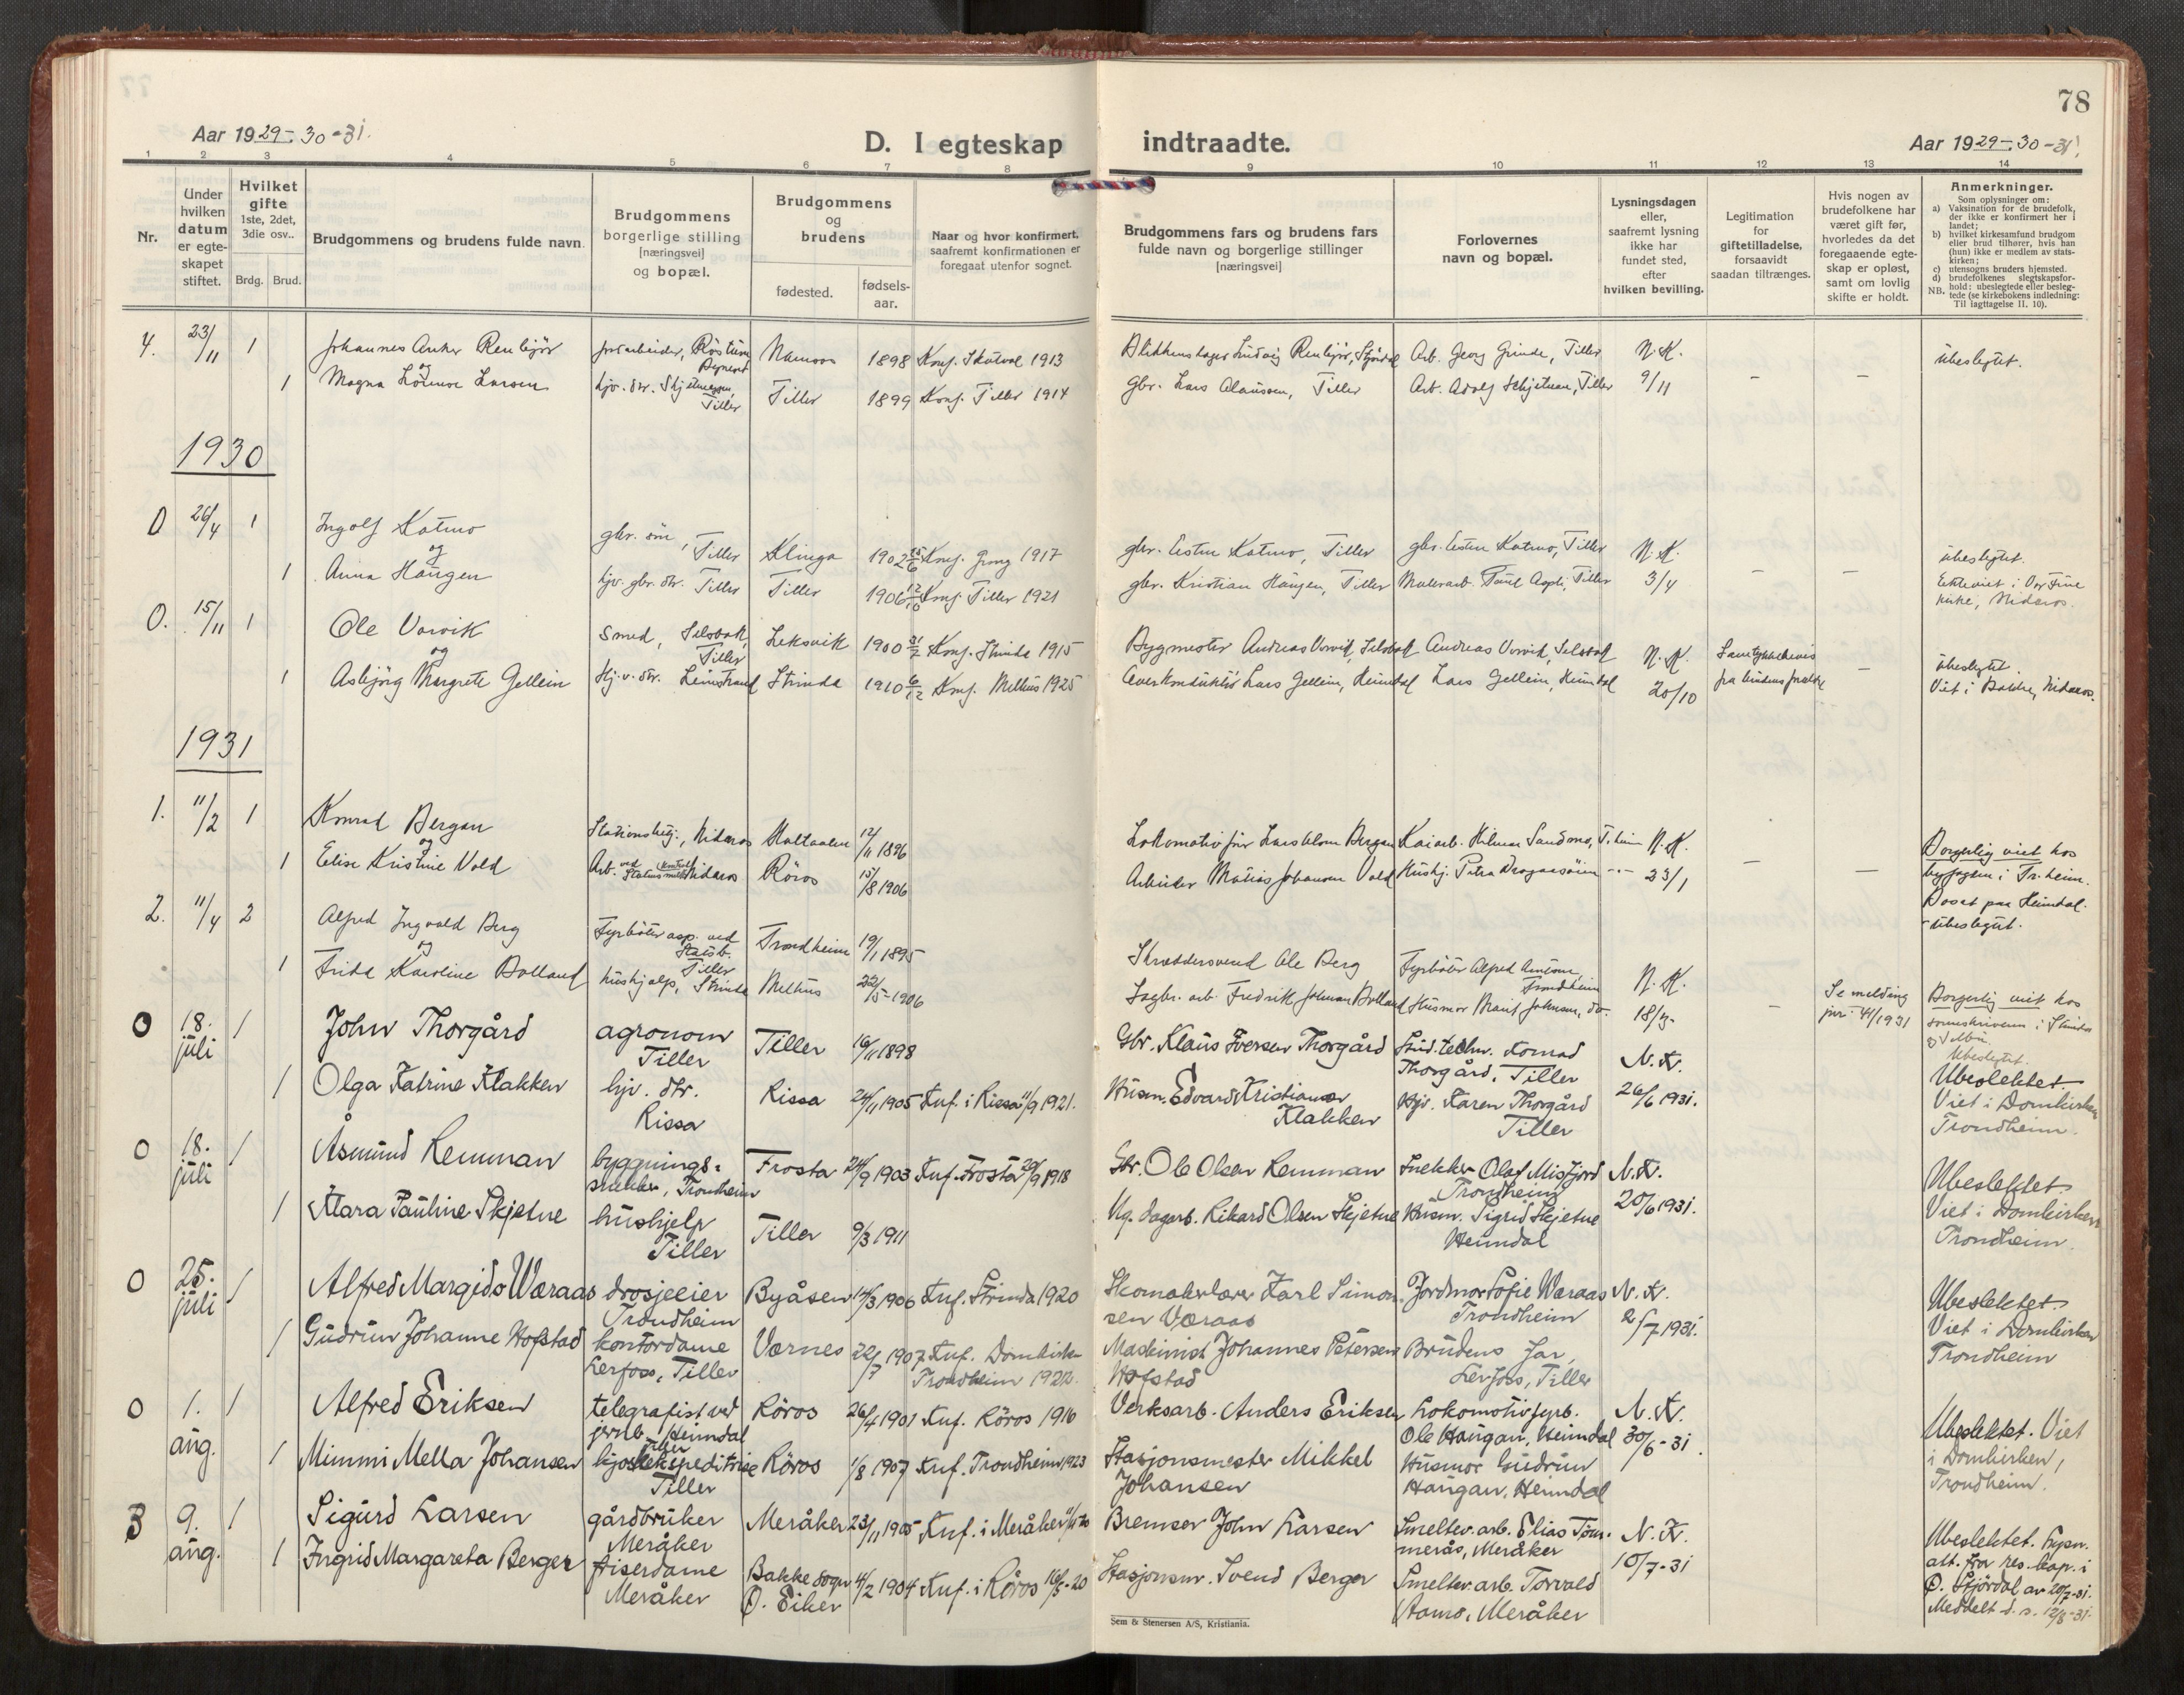 78
Aar 1929-30-31.
D. I egteskap indtraadte.
Aar 1929-30-31.
1 2 3 4 5 6 7 8 9 10 11 12 13 14
Nr.
Under hvilken datum er egteskapet stiftet.
Hvilket gifte
1ste, 2det, 3die osv..
Brdg. Brud.
Brudgommens og brudens fulde navn.
Brudgommens borgerlige stilling [næringsvei] og bopæl.
Brudgommens og brudens
fødested.
fødselsaar.
Naar og hvor konfirmert, saafremt konfirmationen er foregaat utenfor sognet.
Brudgommens fars og brudens fars fulde navn og borgerlige stillinger [næringsvei]
Forlovernes navn og bopæl.
Lysningsdagen eller, saafremt lysning ikke har fundet sted, efter hvilken bevilling.
Legitimation for giftetilladelse, forsaavidt saadan tiltrænges.
Hvis nogen av brudefolkene har været gift før, hvorledes da det foregaaende egteskap er opløst, samt om lovlig skifte er holdt.
Anmerkninger.
Som oplysninger om:
a) Vaksination for de brudefolk, der ikke er konfirmert her i landet;
b) hvilket kirkesamfund brudgom eller brud tilhører, hvis han (hun) ikke er medlem av statskirken;
c) utensogns bruders hjemsted.
d) brudefolkenes slegtskapsforhold: ubeslegtede eller beslegtede (se kirkebokens indledning:
NB. Til iagttagelse II. 10).
4. 23/11 1 Johannes Anker Renbjör
Namsos 1898 Konf. Skatval 1913
Arb. Georg Grinde, Tiller N.K. ubeslegtet.
og
1 Magna Larsen
Tiller
Tiller 1899 Konf. Tiller 1914
gbr. Lars Olaussen, Tiller
Arb. Adolf Skjetnan, Tiller 9/11 - -
1930
0 26/4 1 Ingolf Katmo
gbr. sön, Tiller Klinga 1902 Konf. Grong 1917
gbr. Esten Katmo, Tiller gbr. Esten Katmo, Tiller N.K. ubeslegtet.
og
1 Anna Haugen
hjv. gbr. dtr. Tiller Tiller 1906 Konf. Tiller 1921
gbr. Kristian Haugen, Tiller Malerarb. Tiller 3/4 - -
Ekteviet i Vor Frue kirke, Nidaros.
0. 15/11 1 Ole Vorvik
Smed, Selsbak, Tiller Leksvik 1900 Konf. Strinda 1915
Bygmester Andreas Vorvik, Selsbak Andreas Vorvik, Selsbak N.K.
Samtykkebevis fra brudens forældre - ubeslegtet.
og
1 Asbjörg Margrete Gellein
Hjv. dtr. Leinstrand Strinda 1910 Konf. Melhus 1925
Lars Gellein, Heimdal Lars Gellein, Heimdal 20/10
Viet i Bakke, Nidaros.
1931
1. 11/2 1 Konrad Bergan
Stationsbetj., Nidaros Haltdalen 12/11 1896
Bergan Kaiarb. Hilmar Sandmo, T.heim N.K.
og
1 Elise Kristine Vold
Nidaros Röros 15/8 1906
Arbeider Matias Johansen Vold 23/1 - -
Borgerlig viet hos byfogden i Tr.heim.
Bosat paa Heimdal.
- ubeslegtet.
2. 11/4 2 Alfred Ingvald Berg
Fyrböter asp. ved Statsb. Tiller Trondheim 19/1 1895
Skræddersvend Ole Berg
Fyrböter Alfred Trondheim N.K.
og
1 Frida Karoline Bolland
hushjælp, Strinda Melhus 22/5-1906
Sagbr. arb. Fredrik Johnsen Bolland 18/3-
- Se melding jnr. 41/1931
Borgerlig viet hos sorenskriveren i Strinda og Selbu.
Ubeslegtet.
0 18. juli 1 John Thorgård
agronom Tiller Tiller 16/11 1898
Gbr. Klaus Iversen Thorgård Stud. techn. Konrad Thorgård, Tiller N.K.
Ubeslektet.
1 Olga Katrine Klakken
hjv. dtr. Rissa Rissa 24/11 1905 Knf. i Rissa 11/9 1921.
Husm. Edvard Kristiansen Klakken Hjv. Karen Thorgård Tiller 26/6 1931.
Viet i Domkirken Trondheim.
0 18. juli 1 Åsmund Lemman
bygningssnekker, Trondheim Frosta 24/9 1903 Knf. Frosta 29/9 1918
Gbr. Ole Olsen Lemman Snekker Olaf Misfjord Trondheim N.K.
Ubeslektet.
1 Klara Pauline Skjetne
hushjelp Tiller Tiller 9/3 1911
Rikard Olsen Skjetne Husm. Sigrid Skjetne Heimdal 20/6 1931.
Viet i Domkirken Trondheim.
0 25. juli 1 Alfred Margido Wæraas
drosjeeier Trondheim Byåsen 14/3 1906 Knf. Strinda 1920
Skomakerlærer Karl Simonsen Væraas Jordmor Sofie Wæraas Trondheim N.K.
Ubeslektet.
1 Gudrun Johanne Hofstad
kontordame Lerfoss, Tiller Værnes 22/7 1907 Knf. Domkirken Trondheim 1922.
Maskinist Johannes Petersen Hofstad Brudens far, Lerfoss, Tiller 2/7 1931.
Viet i Domkirken Trondheim
0 1. aug. 1 Alfred Eriksen
telegrafist ved jernb. Heimdal Tiller Röros 26/4 1901 Knf. Röros 1916
Verksarb. Anders Eriksen Lokomotivfyrb. Ole Haugan, Heimdal N.K.
Ubeslektet. Viet
1 Mimmi Mella Johansen
kioskekspeditrise Tiller Röros 1/8 1907 Knf. Trondheim 1923
Stasjonsmester Mikkel Johansen Husmor Gudrun Haugan, Heimdal 30/6-31
i Domkirken, Trondheim.
3 9. aug. 1 Sigurd Larsen
gårdbruker Meråker Meråker 23/11 1905 Knf. i Meråker
Bremser John Larsen Smelter. arb. Elias Tömmerås, Meråker N.K.
1 Ingrid Margareta Berger
friserdame Meråker Bakke sogn Ö. Eiker 4/2 1904 Knf. i Röros 16/5-20
Stasjonsm. Svend Berger Smelter arb. Torvald Aamo, Meråker 10/7-31
Ubeslektet. Lysn. att. fra res. kap. i Ö. Stjördal av 20/7-31.
Meddelt d. s. 12/8-31.
Sem & Stenersen A/S, Kristiania.